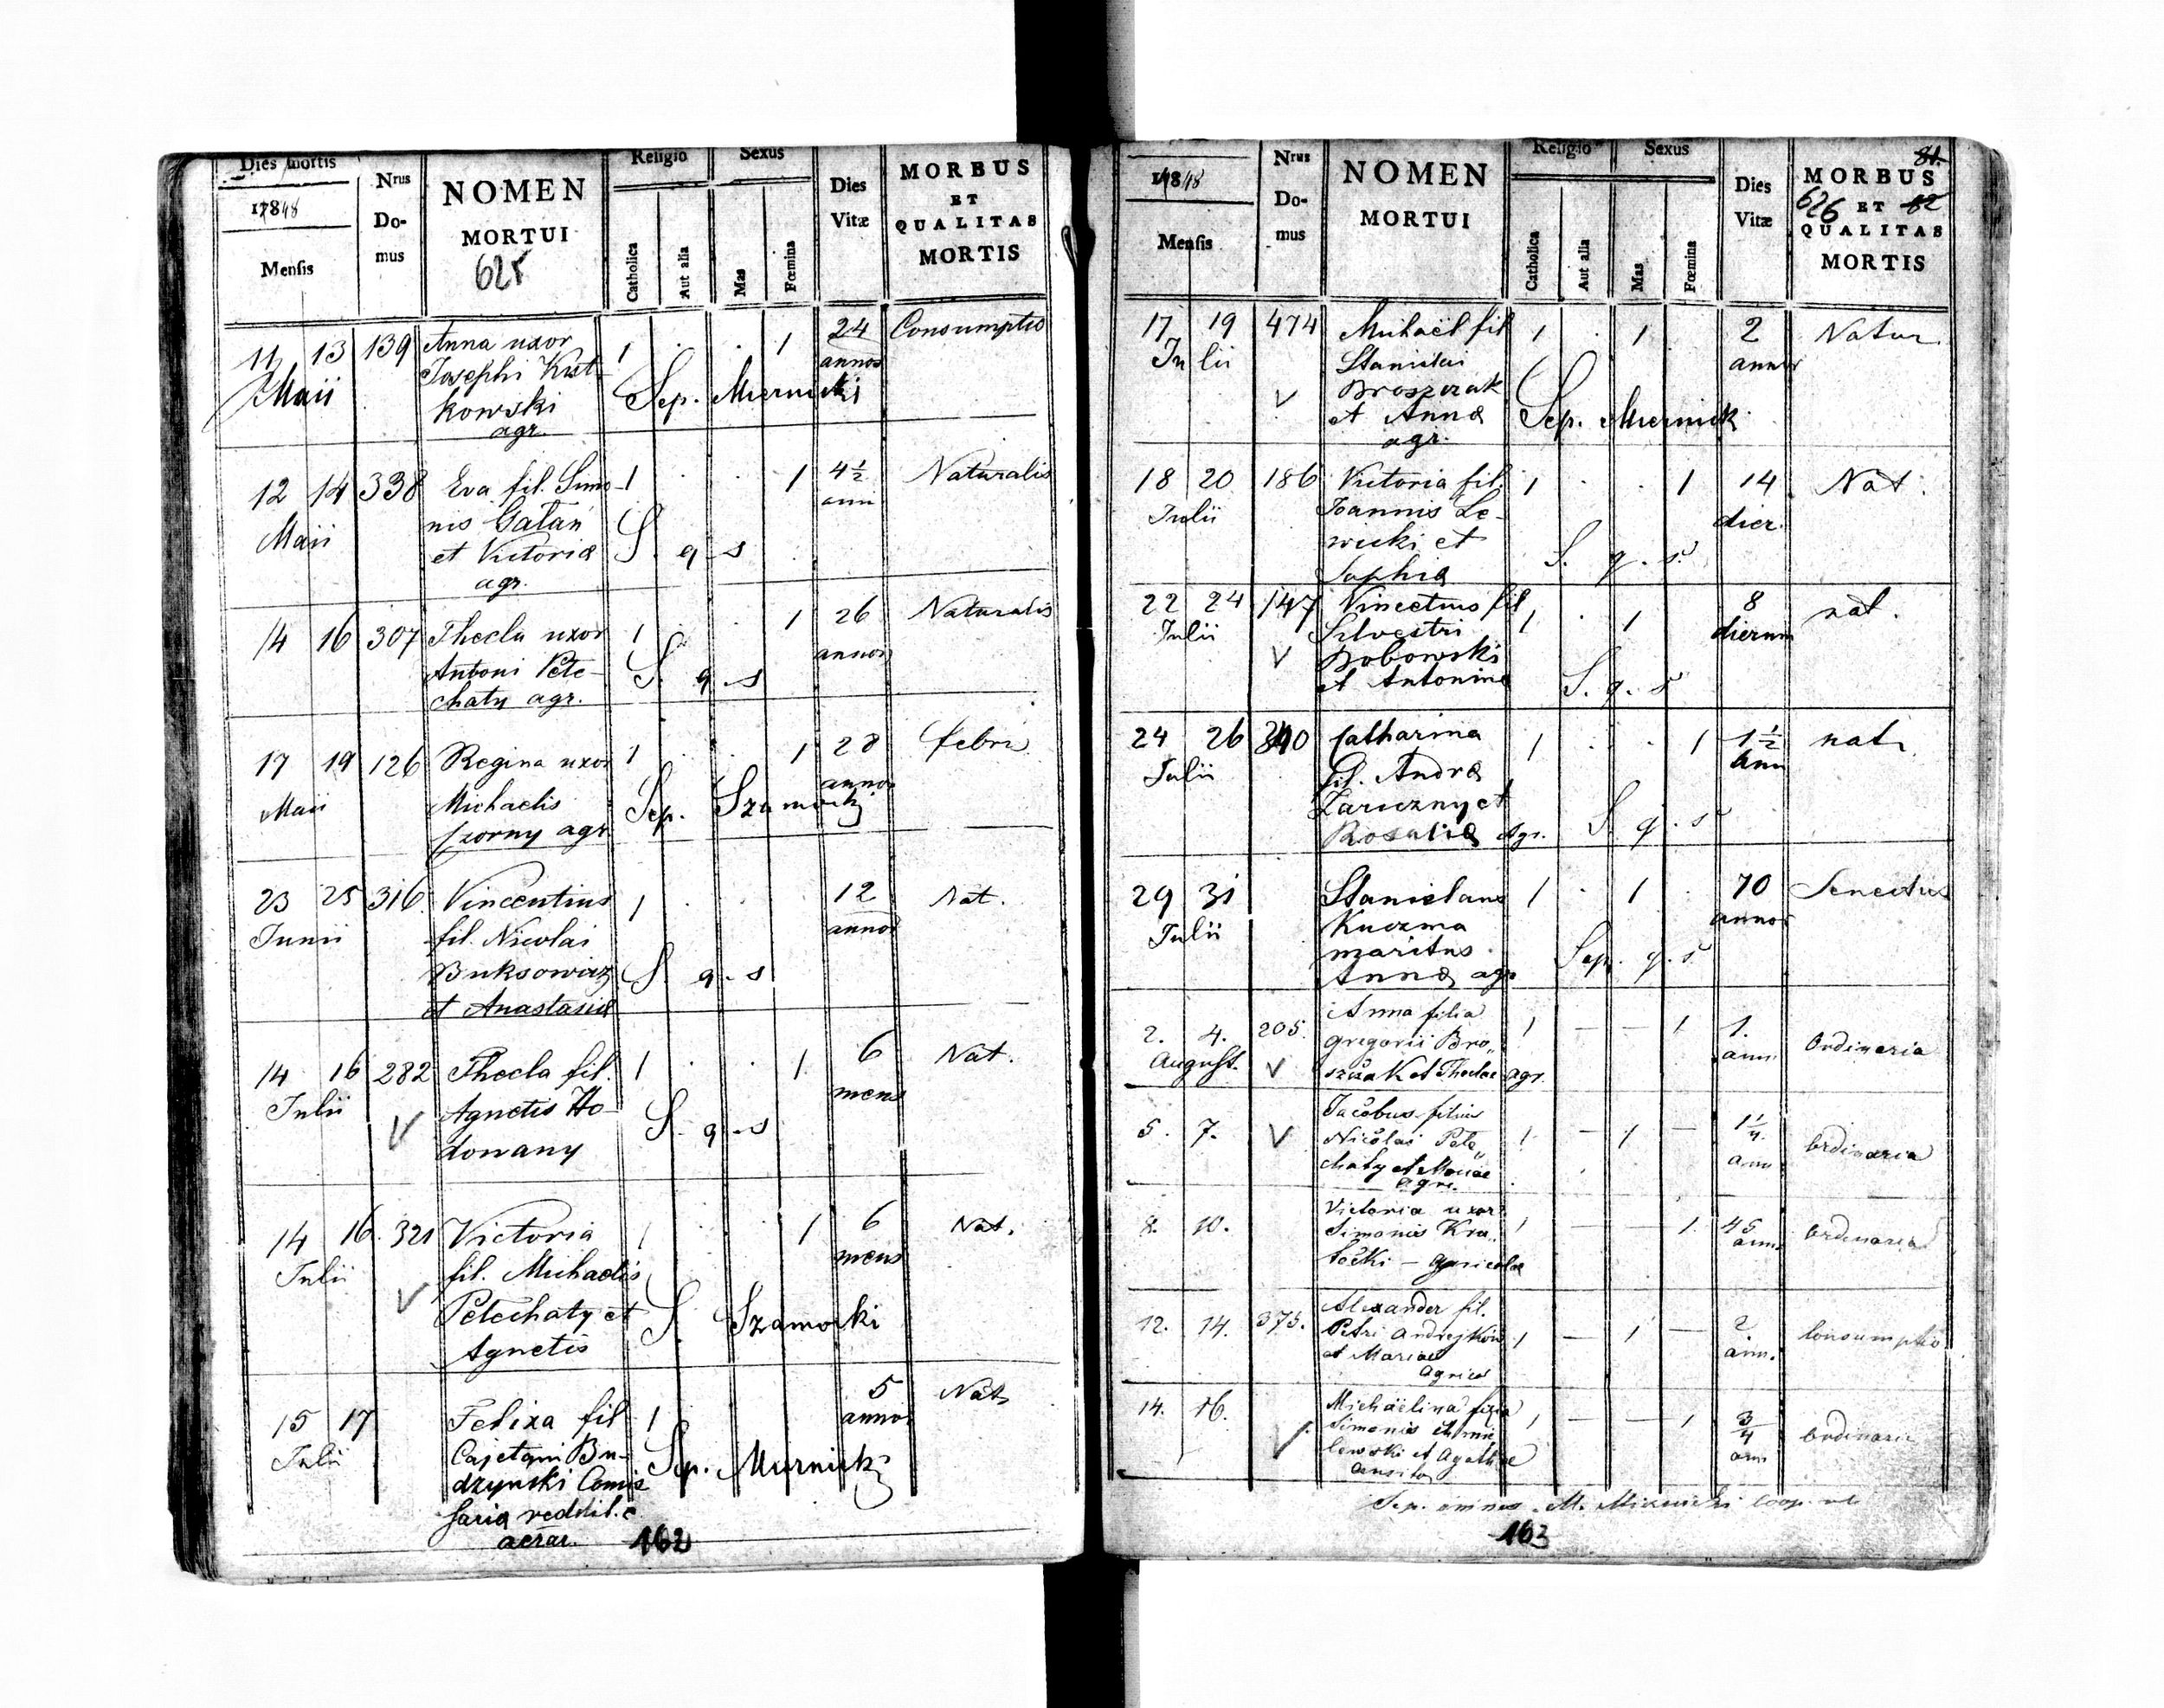 Dies mortis
17848
Mensis
Nrus
Do-
mus
NOMEN
MORTUI
625
Religio
Catholica
Aut alia
Sexus
Mas
Fœmina
Dies
Vitæ
MORBUS
ET
QUALITAS
MORTIS
11 13 139 Anna uxor 1 . . 1 24 Consumptio
Maii Josephi Kut- annor
kowski Sep. Miernicki
agr.
12 14 338 Eva fil. Simo- 1 . . 1 4½ Naturalis
Maii nis Gatan ann
et Victoriæ S. q. s
agr.
14 16 307 Thecla uxor 1 . . 1 26 Naturalis
Antoni Pete- S. q. s annor
chaty agr.
17 19 126 Regina uxor 1 . . 1 28 febri
Maii Michaelis Sep. Szamocki annor
Czorny agr.
23 25 316 Vincentius 1 . . . 12 Nat.
Junii fil. Nicolai annor
Buksowicz S. q. s
et Anastasiæ
14 16 282 Thecla fil. 1 . . 1 6 Nat.
Julii Agnetis Ho- S. q. s mens
dowany
14 16. 321 Victoria 1 . . 1 6 Nat.
Julii fil. Michaelis mens
Petechaty et S. Szamocki
Agnetis
15 17 Felixa fil 1 5 Nat
Julii Cajetani Bu- annor
dzynski Comis Sep. Miernicki
saria reddit. c
aerar.
162
17848
Mensis
Nrus
Do-
mus
NOMEN
MORTUI
Religio
Catholica
Aut alia
Sexus
Mas
Fœmina
Dies
Vitæ
81.
MORBUS
626 ET 82
QUALITAS
MORTIS
17 19 474 Michaël fil 1 . 1 2 Natur.
Julii Stanislai annor
Broszczak
et Annæ Sep. Miernick
agr.
18 20 186 Victoria fil. 1 . . 1 14 Nat.
Julii Joannis Le- dier.
wicki et S. q. s.
Sophiæ
22 24 147 Vincetius fil 1 . 1 8 nat.
Julii Silvestri dierum
Bobowski
et Antoninæ S. q. s
24 26 Catharina 1 . . 1 1½ nat.
Julii fil. Andræ ann
Zariczny et
Rosaliæ Agr. S. q. s
29 31 Stanislaus 1 . 1 . 70 Senectus
Julii Kuczma annor
maritus Sep. q. s
Annæ agr
2. 4. 205. Anna filia 1 — — 1 1. Ordinaria
August. Gregorii Bro„ ann.
szczak et Theclae agr.
5. 7. Jacobus filius 1 — 1 — 1¼ ordinaria
Nicolai Pete„ ann
chaty et Mariae
agr.
8. 10. Victoria uxor 1 — — 1 45 ordinaria
Simonis Kra„ ann.
- agricolae
12. 14. 375. Alexander fil. 1 — 1 — 2. Consumptio
Petri Andrejków ann.
et Mariae
agricol
14. 16. Michaëlina filia 1 — — 1 ¾ ordinaria
Simonis Chmie ann
lewski et Agathae
Sep. omnes M. Miernicki Coop.
163